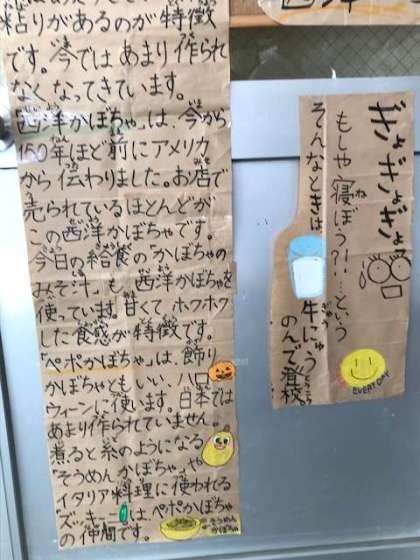 粘りがあるのが特徴
です。今ではあまり作られ
なくなってきています。
「西洋かぼちゃ」は、今から
150年ほど前にアメリカ
から伝わりました。お店で
売られているほとんどが
この西洋かぼちゃです。
今日の給食の「かぼちゃの
みそ汁」も、西洋かぼちゃを
使っています。甘くてホクホク
した食感が特徴です。
「ペポかぼちゃ」は、飾り
かぼちゃともいい、ハロ
ウィーンに使います。日本では
あまり作られていません。
煮ると糸のようになる
「そうめんかぼちゃ」や
イタリア料理に使われる
「ズッキーニ」はペポかぼちゃ
の仲間です。
そうめん
かぼちゃ
西洋
ぎょぎょぎょ
もしや寝ぼう?!!…という
そんなときは
牛にゅう
のんで登校。
EVERY DAY